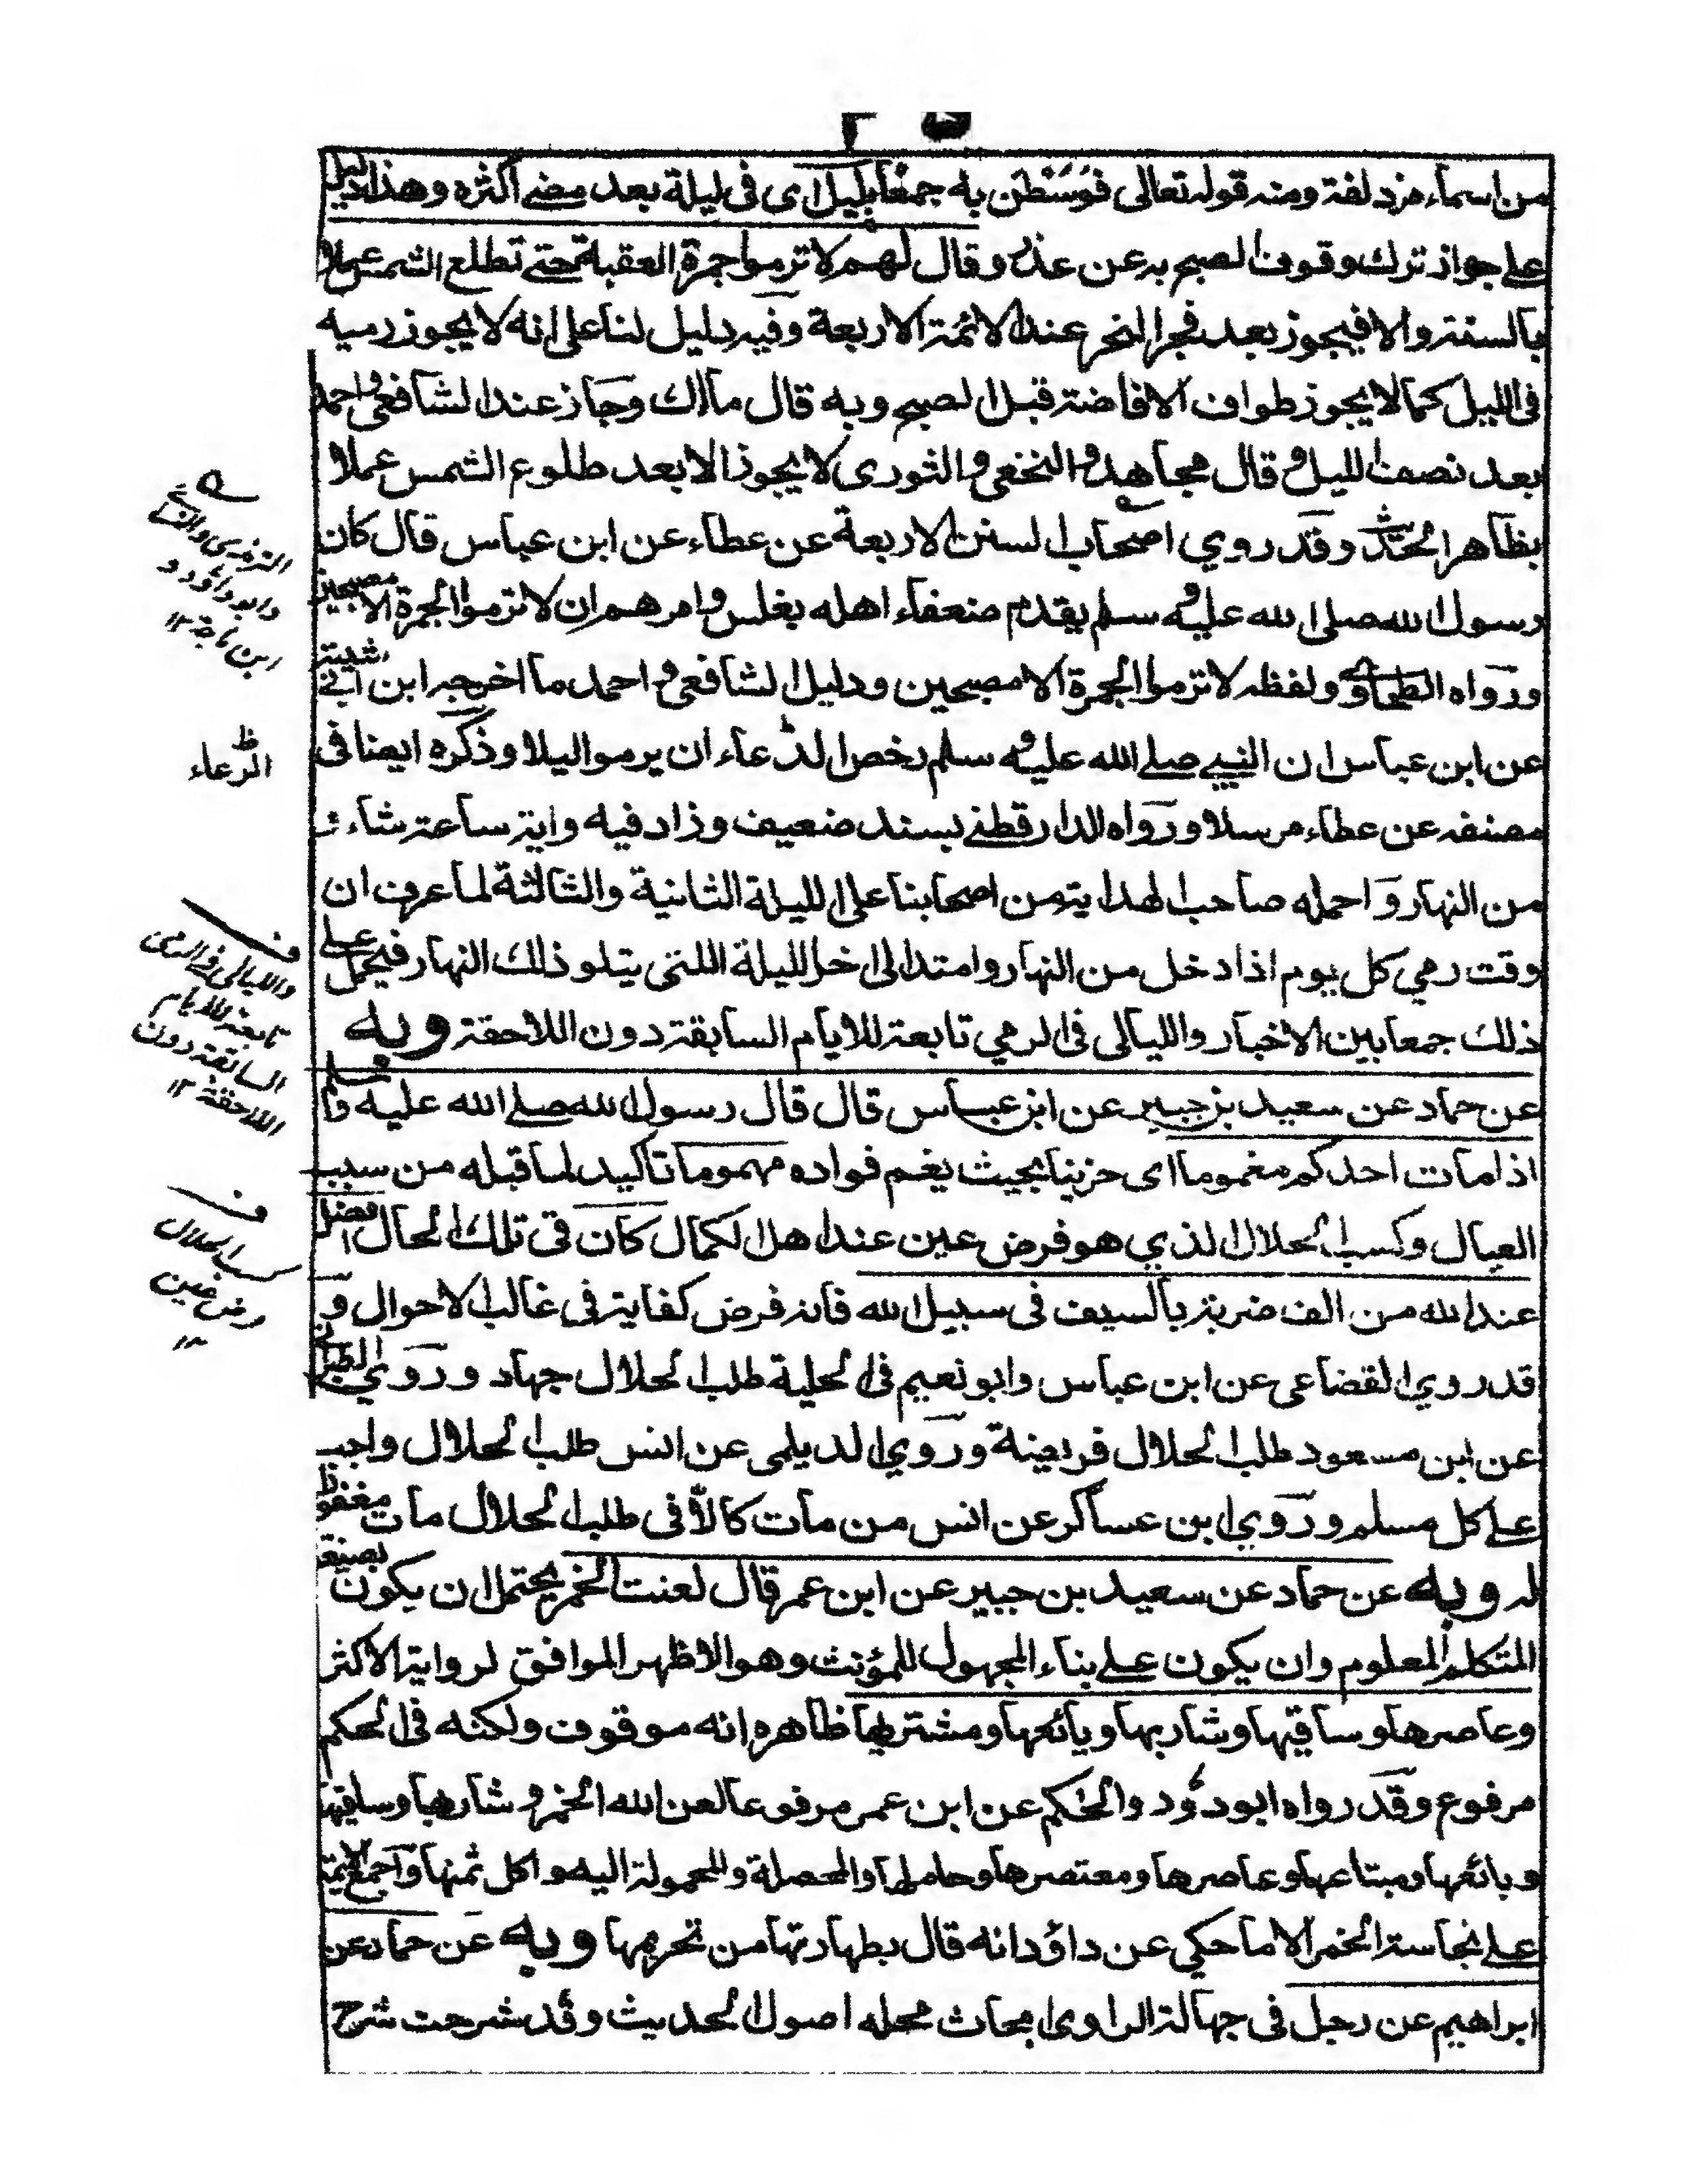 من اسماء مزدلفة ومنه قوله تعالى فوسطن به جمعا بليل اى فى ليلة بعد مضے اكثره وهذا دليل
علے جواز ترك وقوف الصبح به عن عذر وقال لهم لا ترموا جمرة العقبة حتے تطلع الشمس عملا
بالسنة والا فيجوز بعد فجر النحر عند الائمة الاربعة وفيه دليل لنا على انه لا يجوز رميه
فى الليل كما لا يجوز طواف الافاضة قبل الصبح وبه قال مالك وجاز عند الشافعى واحمد
بعد نصف الليل وقال مجاهد والنخعى والثورى لا يجوز الا بعد طلوع الشمس عملا
بظاهر الحديث وقد روي اصحاب السنن الاربعة عن عطاء عن ابن عباس قال كان
رسول الله صلى الله عليه وسلم يقدم ضعفاء اهله بغلس وامرهم ان لا ترموا الجمرة الا مصبحين
ورواه الطحاوے ولفظه لا ترموا الجمرة الا مصبحين ودليل الشافعى واحمد ما اخرجه ابن ابے شيبة
عن ابن عباس ان النبے صلے الله عليه وسلم رخص للرعاء ان يرموا ليلا وذكره ايضا فى
مصنفه عن عطاء مرسلا ورواه الدارقطنے بسند ضعيف وزاد فيه واية ساعة شاء
من النهار واحمله صاحب الهداية من اصحابنا على الليلة الثانية والثالثة لما عرف ان
وقت رمي كل يوم اذا دخل من النهار وامتد الى اخر الليلة اللتى يتلو ذلك النهار فيحمل علے
ذلك جمعا بين الاخبار والليالى فى الرمي تابعة للايام السابقة دون اللاحقة وبه
عن حماد عن سعيد بن جبير عن ابن عباس قال قال رسول الله صلے الله عليه وسلم
اذا مات احدكم مغموما اى حزينا بحيث يغم فواده مهموما تاكيد لما قبله من سبب
العيال وكسب الحلال الذي هو فرض عين عند اهل الكمال كان فى تلك الحال افضل
عند الله من الف ضربة بالسيف فى سبيل الله فانه فرض كفاية فى غالب الاحوال و
قد روي القضاعى عن ابن عباس وابو نعيم فى الحلية طلب الحلال جهاد وروي الطبرانے
عن ابن مسعود طلب الحلال فريضة وروي الديلمى عن انس طلب الحلال واجب
علے كل مسلم وروي ابن عساكر عن انس من مات كالا فى طلب الحلال مات مغفورا
له وبه عن حماد عن سعيد بن جبير عن ابن عمر قال لعنت الخمر يحتمل ان يكون بصيغة
المتكلم المعلوم وان يكون علے بناء المجهول للمؤنث وهو الاظهر الموافق لرواية الاكثر
وعاصرها وساقيها وشاربها وبائعها ومشتريها ظاهره انه موقوف ولكنه فى الحكم
مرفوع وقد رواه ابو دؤد والحاكم عن ابن عمر مرفوعا لعن الله الخمر وشاربها وساقيها
وبائعها ومبتاعها وعاصرها ومعتصرها وحاملها والمحمولة اليه واكل ثمنها واجمع الائمة
علے نجاسة الخمر الا ما حكي عن داؤد انه قال بطهارتها من تحريمها وبه عن حماد عن
ابراهيم عن رجل فى جهالة الراوى ابحاث محله اصول الحديث وقد شرحت شرح
الترمذى والنسائے
وابو داؤد و
ابن ماجة ١٢
الرعاء
ف
والليالى فے الرمى
تابعة للايام
السابقة دون
اللاحقة ١٢
ف
كسب الحلال
فرض عين
١٢